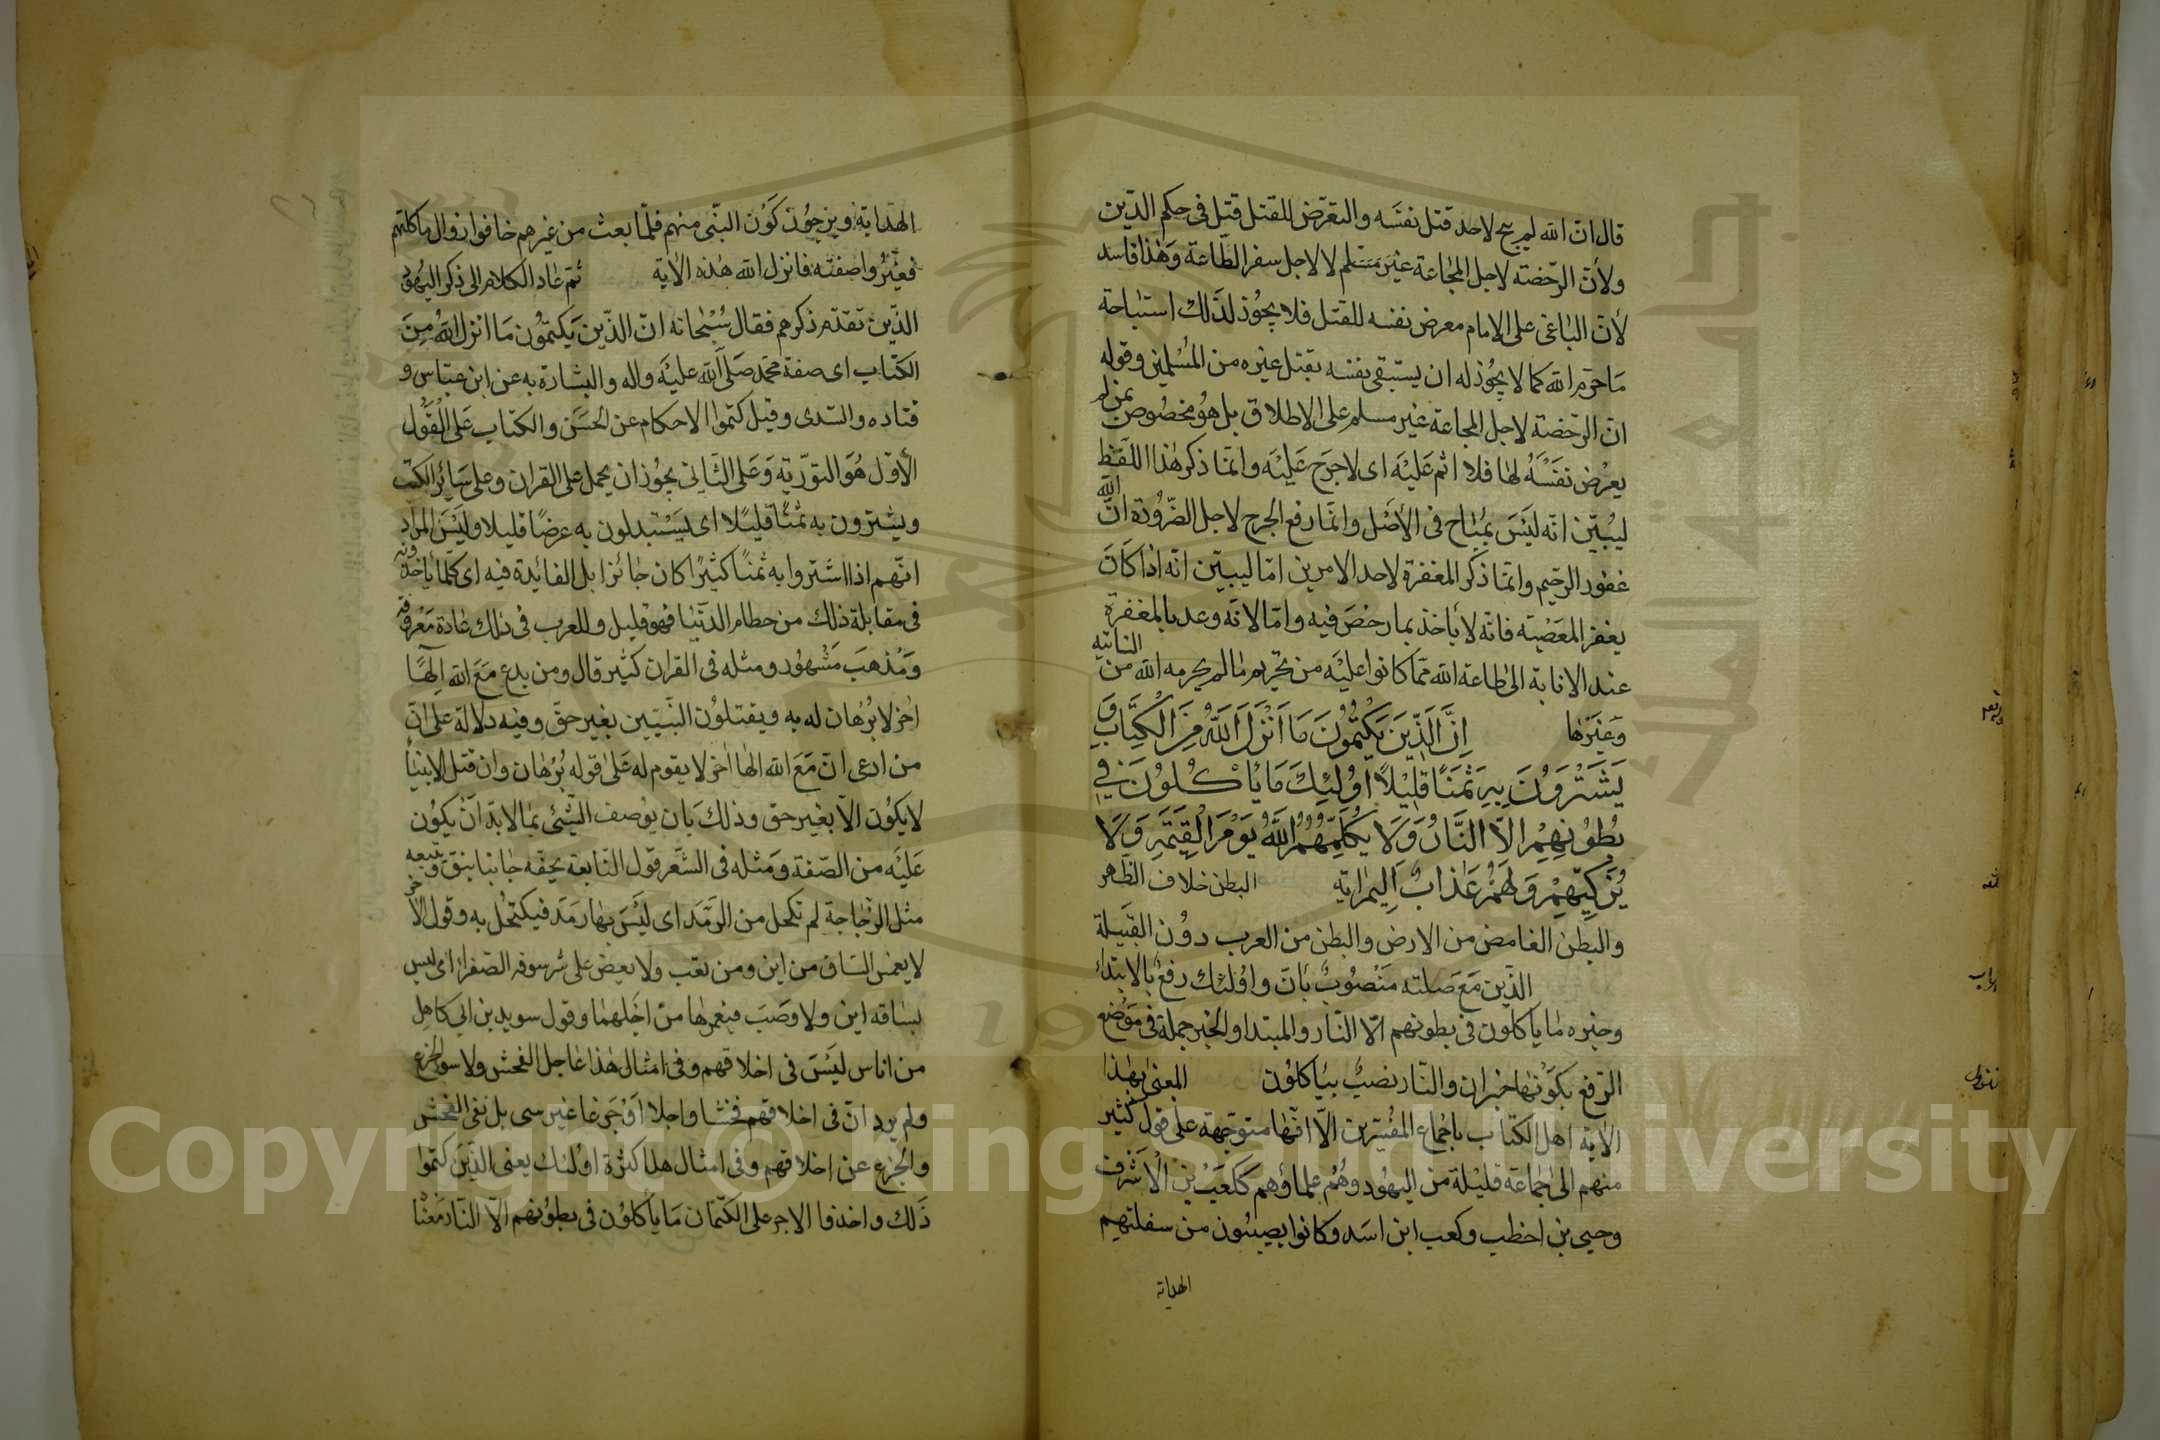 قال ان الله لم يبح لاحد قتل نفسه والتعرض للقتل قتل في حكم الدين
ولأن الرخصة لاجل المجاعة غير مسلم لا لاجل سفر الطاعة وهذا فاسد
لأن الباغي على الامام معرض نفسه للقتل فلا يجوز لذلك استباحة
ما حرم الله كما لا يجوز له ان يستبقي نفسه بقتل غيره من المسلمين وقوله
ان الرخصة لاجل المجاعة غير مسلم على الاطلاق بل هو مخصوص بمن لم
يعرض نفسه لها فلا اثم عليه اى لا حرج عليه وانما ذكر هذا اللفظ
ليبين انه ليس بمباح في الأصل وانما رفع الحرج لاجل الضرورة ان الله
غفور الرحيم وانما ذكر المغفرة لاحد الامرين اما ليبين انه اذا كان
يغفر المعصية فانه لا يأخذ بما رخص فيه واما لانه وعد بالمغفرة
عند الانابة الى طاعة الله مما كانوا عليه من تحريم ما لم يحرمه الله من السائبة
وغيرها ان الذين يكتمون ما انزل الله من الكتاب و
يشترون به ثمنا قليلا اولئك ما يأكلون في
بطونهم الا النار ولا يكلمهم الله يوم القيمة ولا
يزكيهم ولهم عذاب اليم اية البطن خلاف الظهر
والبطن الغامض من الارض والبطن من العرب دون القبيلة
الذين مع صلته منصوب بأن واولئك رفع بالابتداء
وخبره ما يأكلون في بطونهم الا النار والمبتدا والخبر جملة في موضع
الرفع بكونها خبر ان والنار نصب بيأكلون المعنى بهذا
الأية اهل الكتاب باجماع المفسرين الا انها متوجهة على قول كثير
منهم الى جماعة قليلة من اليهود وهم علماؤهم ككعب بن الاشرف
وحيى بن اخطب وكعب ابن اسد وكانوا يصيبون من سفلتهم
الهداية
الهداية ويرجون كون النبي منهم فلما بعث من غيرهم خافوا زوال مأكلتهم
فغيروا صفته فانزل الله هذه الأية ثم عاد الكلام الى ذكر اليهود
الذين تقدم ذكرهم فقال سبحانه ان الذين يكتمون ما انزل الله من
الكتاب اى صفة محمد صلى الله عليه واله والبشارة به عن ابن عباس و
قتاده والسدى وقيل كتموا الاحكام عن الحسن والكتاب على القول
الأول هو التورية وعلى الثاني يجوز ان يحمل على القران وعلى سائر الكتب
ويشترون به ثمنا قليلا اى يستبدلون به عرضا قليلا وليس المراد
انهم اذا اشتروا به ثمنا كثيرا كان جائزا بل الفائدة فيه اى كلما يأخذونه
في مقابلة ذلك من حطام الدنيا فهو قليل وللعرب في ذلك عادة معروفة
ومذهب مشهور ومثله في القران كثير قال ومن يدع مع الله الها
اخر لا برهان له به ويقتلون النبيين بغير حق وفيه دلالة على ان
من ادعى ان مع الله الها اخر لا يقوم له على قوله برهان وان قتل الانبياء
لا يكون الا بغير حق وذلك بان يوصف الشئ بما لا بد ان يكون
عليه من الصفة ومثله في الشعر قول النابغة يحفه جانبا نيق وتتبعه
مثل الزجاجة لم تكحل من الرمد اى ليس بها رمد فيكتحل به وقول الأخر
لا يغمز الساق من اين ومن نقب ولا يعض على شرسوفه الصفر اى ليس
بساقه اين ولا وصب فيغمزها من اجلهما وقول سويد بن ابي كاهل
من اناس ليس في اخلاقهم وفى امثال هذا عاجل الفحش ولا سوء الجزع
ولم يرد ان في اخلاقهم فحشا واجلا او جزعا غير سى بل نفى الفحش
والجزع عن اخلاقهم وفى امثال هذا كثرة اولئك يعنى الذين كتموا
ذلك واخذوا الاجر على الكتمان ما يأكلون في بطونهم الا النار معناه
اعراب
نزول
Copyright © King Saud University